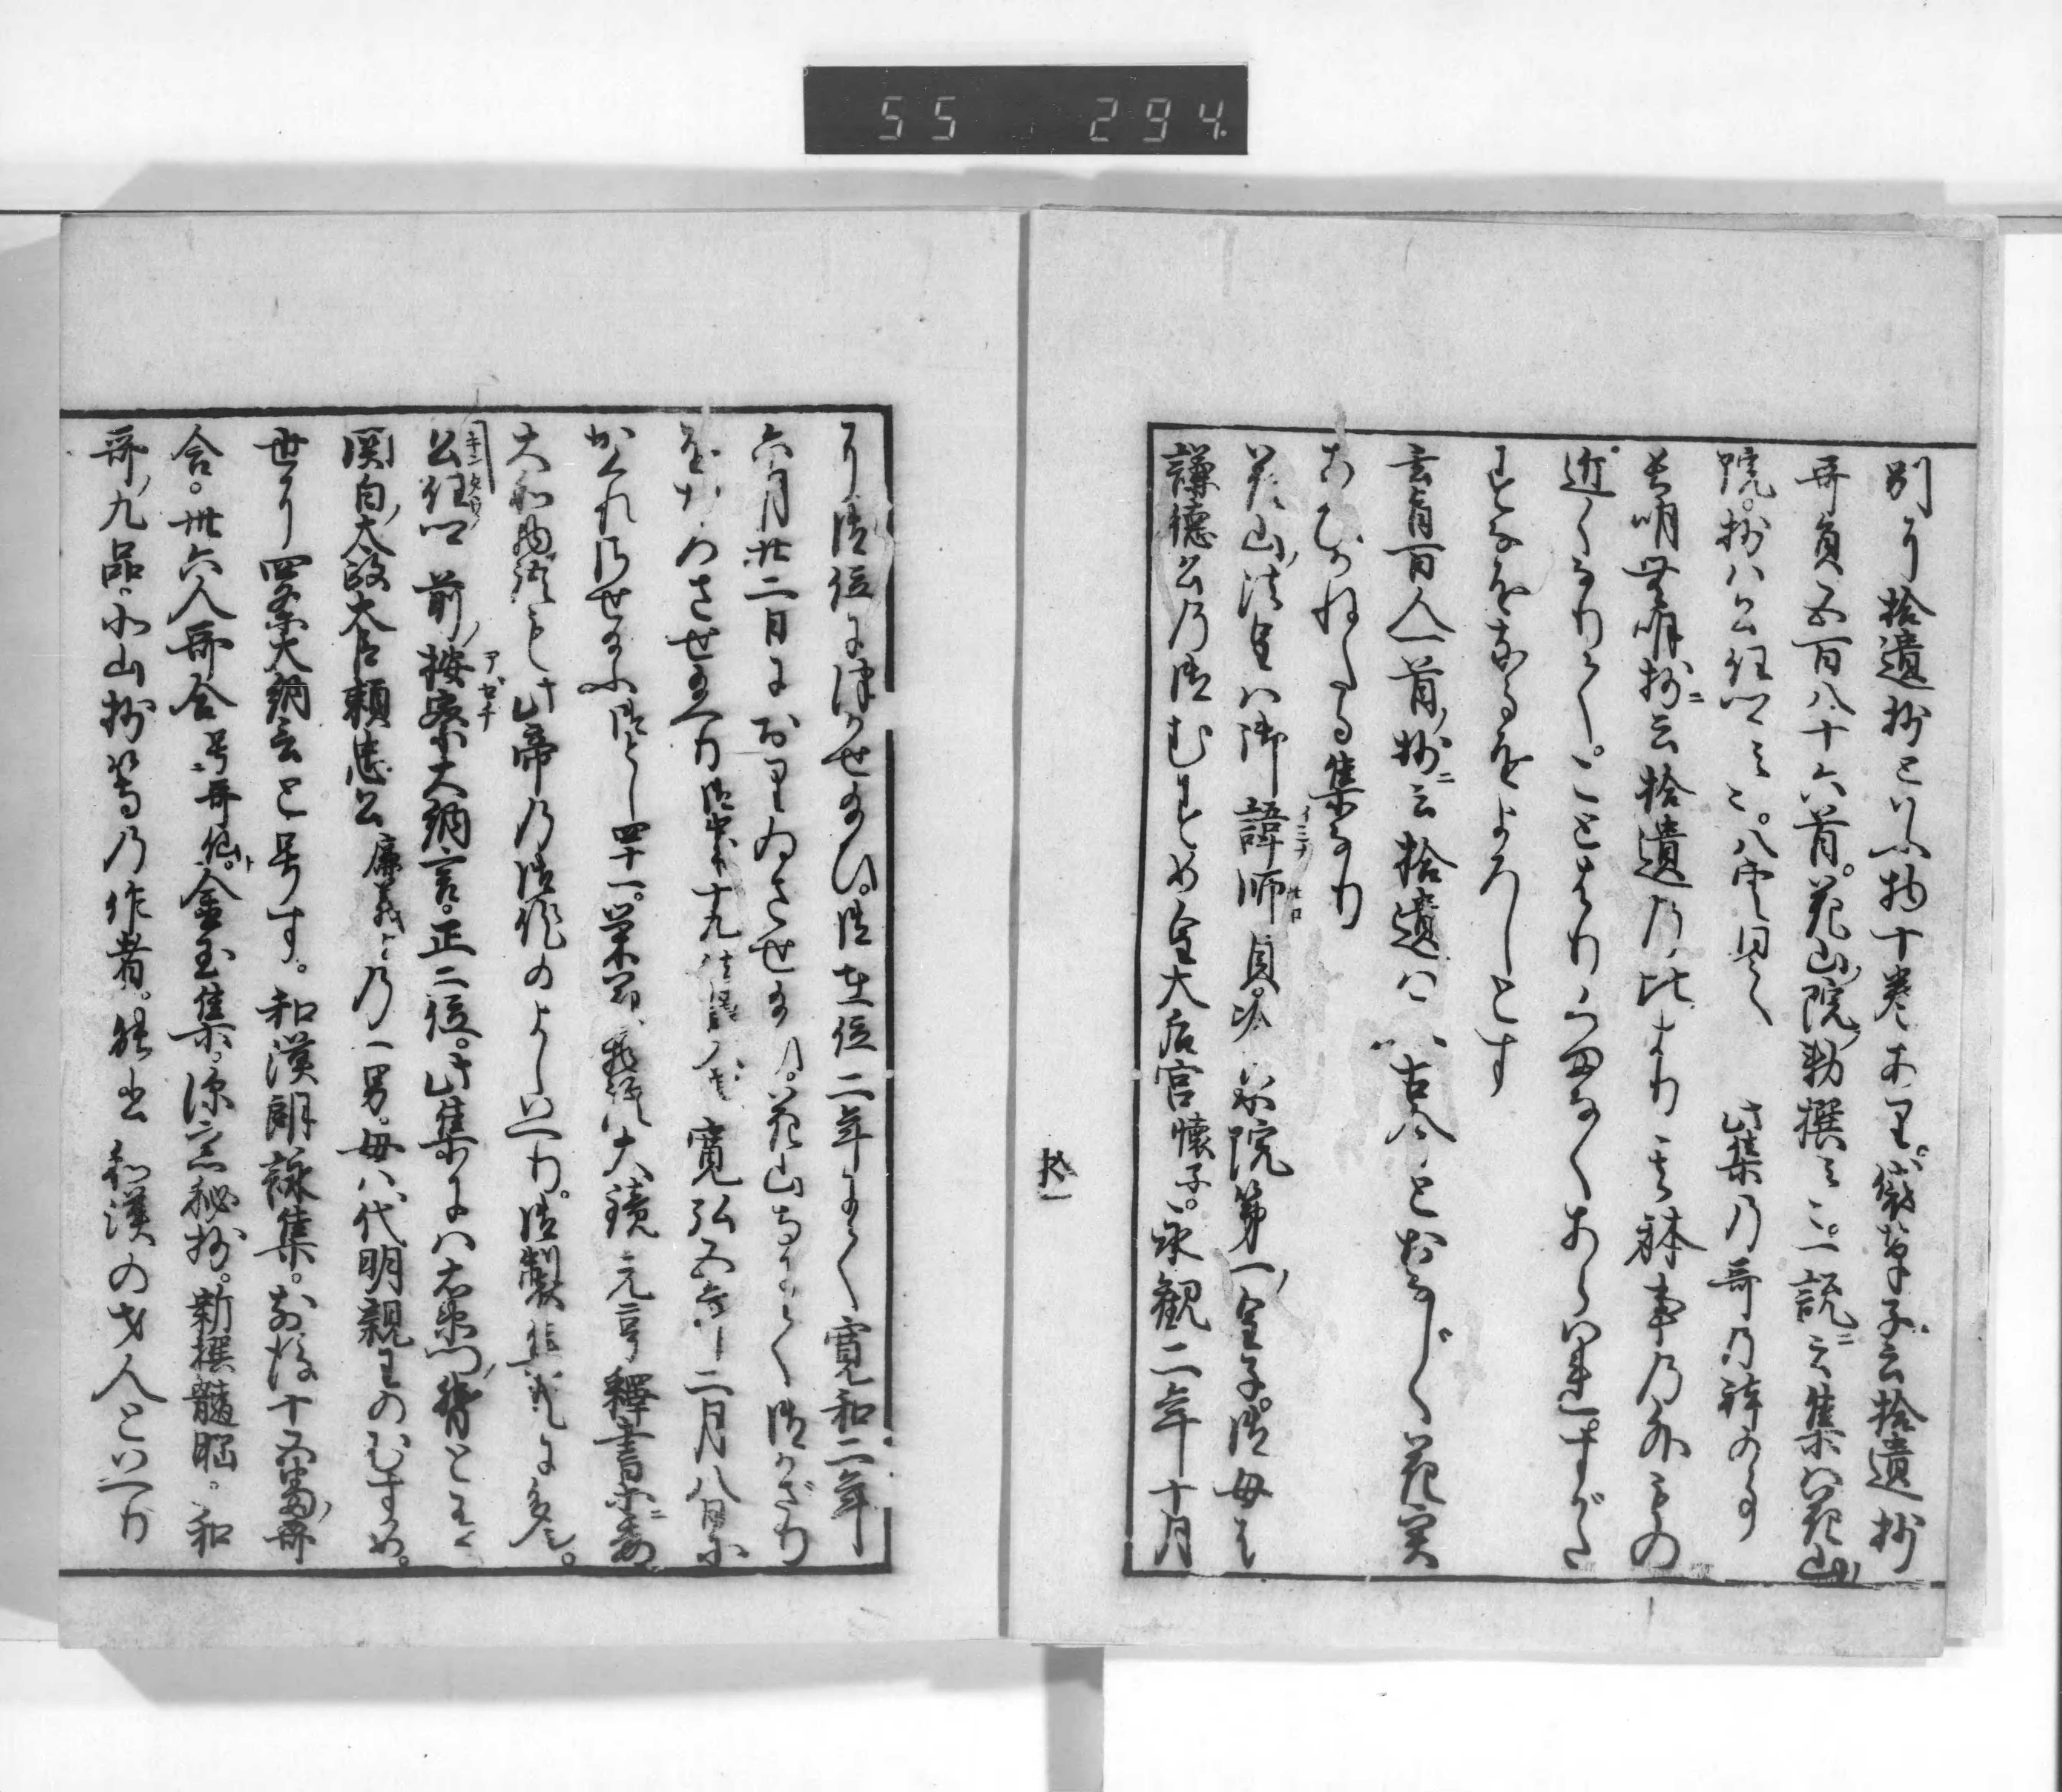 55 294
別に拾遺抄といふ物十巻あり。袋草子云拾遺抄
哥員五百八十六首。花山院勅撰云々。一説ニ云集ハ花山
院。抄ハ公任卿云々。八雲同之 此集乃哥乃躰の事
長明無名抄ニ云拾遺乃比より其躰事乃外に物
近くなりて。ことはりくまなくあらはれ。すがた
すなほなるをよろしとす
玄旨百人一首抄ニ云拾遺は 古今とおなじく花実
あひかねたる集なり
花山法皇ハ御諱師貞。冷泉院第一皇子。御母は
謙徳公乃御むすめ皇太后宮懐子。永観二年十月
拾一
に御位に津かせ給ひ。御在位二年にて寛和二年
六月廿二日におりゐさせ給ひ。花山寺にて御かざり
をおろさせ給へり 寛弘五年二月八日に
かくれ乃せ給ふ御とし四十一。栄花 大鏡 元亨釋書ニ委
大和物語も此帝乃御作のよしいへり。御製集に多し。
公任卿 前按察大納言。正二位。此集には右衛門督とす
関白太政大臣頼忠公廉義公乃一男。母ハ代明親王のむすめ。
世に四条大納言と号す。和漢朗詠集。前後十五番哥
合。卅六人哥合号哥仙。金玉集。深窓秘抄。新撰髄脳。和
哥九品。北山抄等乃作者。能書 和漢の才人といへり